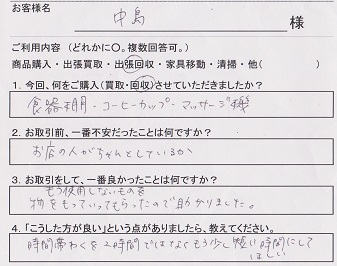 お客様名
中島
様
ご利用内容（どれかに〇。複数回答可。）
商品購入・出張買取・出張回収・家具移動・清掃・他（　　　）
1. 今回、何をご購入（買取・回収）させていただきましたか？
食器棚・コーヒーカップ・マッサージ機
2. お取引前、一番不安だったことは何ですか？
お店の人がちゃんとしているか
3. お取引をして、一番良かったことは何ですか？
もう使用しないものを
物をもっていってもらったので助かりました。
4. 「こうした方が良い」という点がありましたら、教えてください。
時間帯わくを2時間ではなくもう少し短い時間にして
ほしい